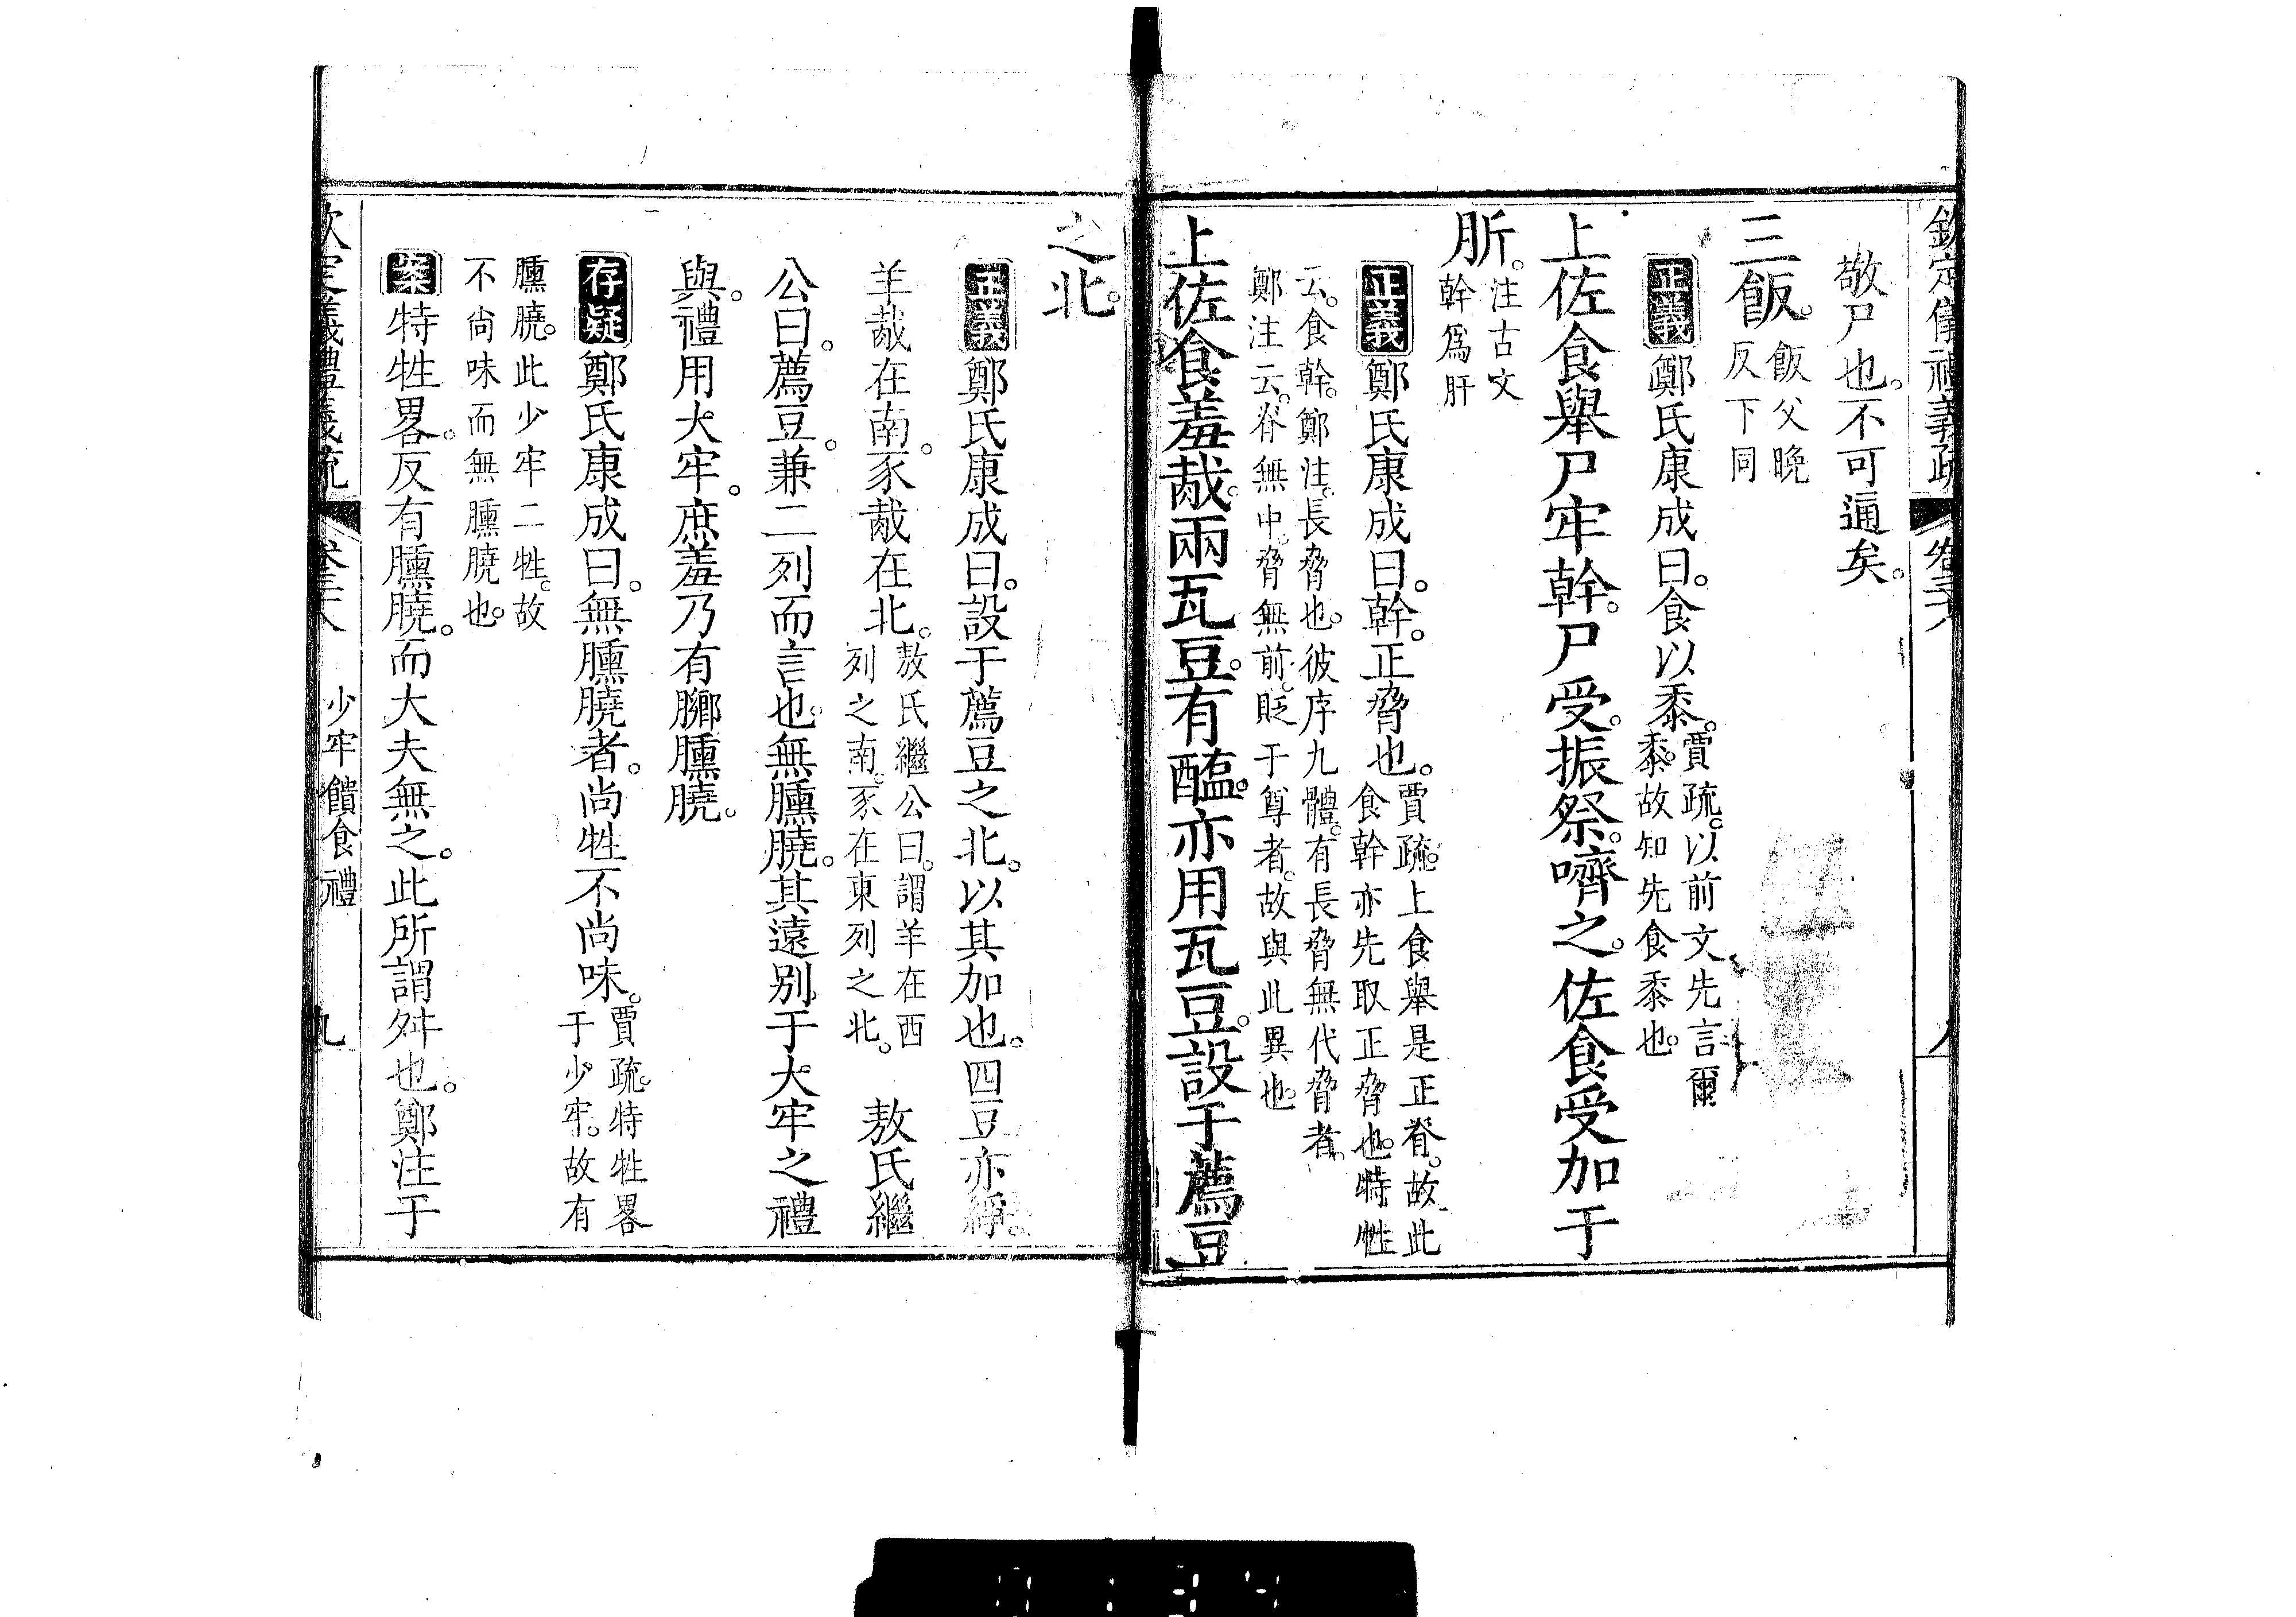 欽定儀禮義疏 卷三十八 八
敬尸也。不可逼矣。
三飯。飯父晚
反下同
正義 鄭氏康成曰。食以黍。賈疏。以前文先言爾
黍。故知先食黍也。
上佐食舉尸牢幹。尸受。振祭。嚌之。佐食受加于
肵。注古文
幹爲肝
正義 鄭氏康成曰。幹。正脅也。賈疏。上食舉是正脊。故此
食幹亦先取正脅也。特牲
云。食幹。鄭注。長脅也。彼序九體。有長脅無代脅者。
鄭注云。脊無中。脅無前。貶于尊者。故與此異也。
上佐食羞胾。兩瓦豆。有醢。亦用瓦豆。設于薦豆
之北。
正義 鄭氏康成曰。設于薦豆之北。以其加也。四豆亦綪。
羊胾在南。豕胾在北。敖氏繼公曰。謂羊在西
列之南。豕在東列之北。 敖氏繼
公曰。薦豆。兼二列而言也。無臐膮。其遠別于大牢之禮
與。禮用大牢。庶羞乃有膷臐膮。
存疑 鄭氏康成曰。無臐膮者。尚牲不尚味。賈疏。特牲畧
于少牢。故有
臐膮。此少牢二牲。故
不尚味而無臐膮也。
案 特牲畧。反有臐膮。而大夫無之。此所謂舛也。鄭注于
欽定儀禮義疏 卷三十八 少牢饋食禮 九